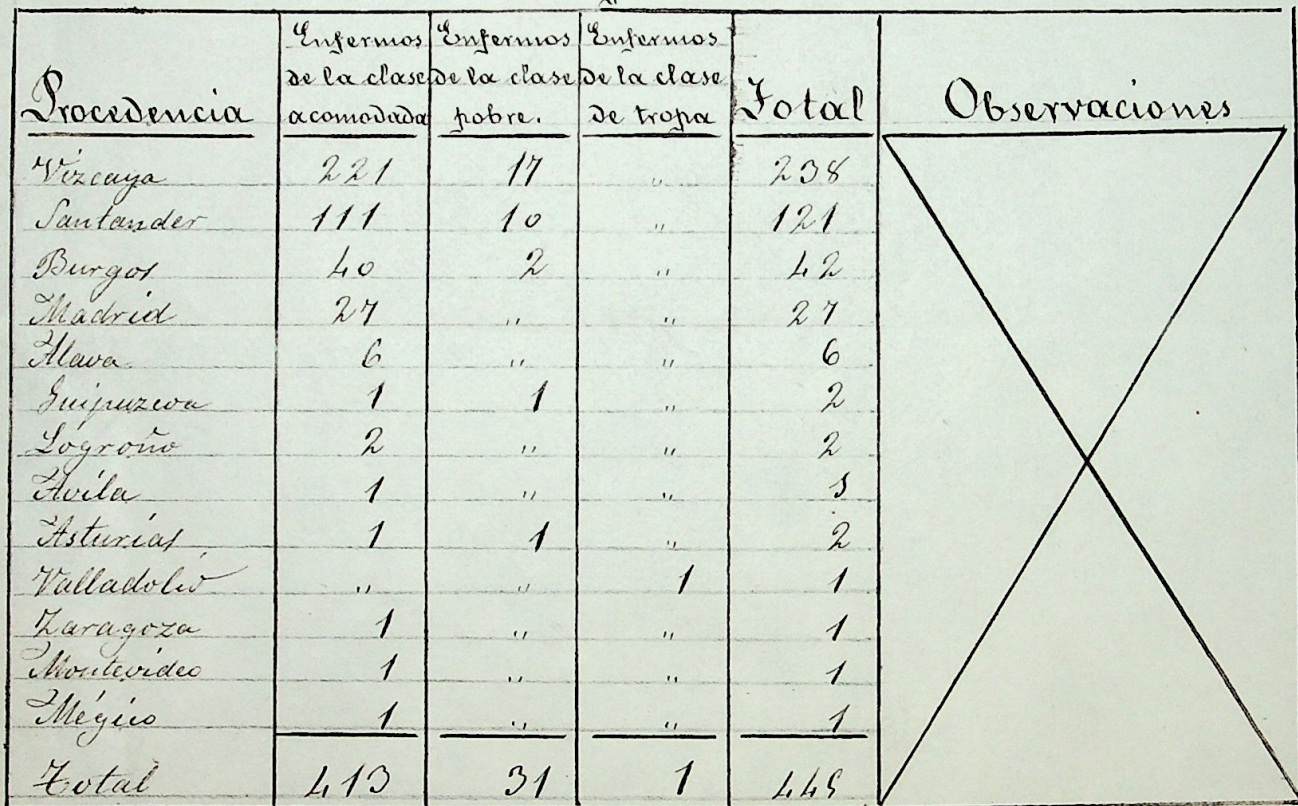 Procedencia | Enfermos de la clase acomodada | Enfermos de la clase pobre. | Enfermos de la clase de tropa | Total | Observaciones
Vizcaya 221 17 " 238
Santander 111 10 " 121
Burgos 40 2 " 42
Madrid 27 " " 27
Alava 6 " " 6
Guipuzcoa 1 1 " 2
Logroño 2 " " 2
Avila 1 " " 1
Asturias 1 1 " 2
Valladolid " " 1 1
Zaragoza 1 " " 1
Montevideo 1 " " 1
Mégico 1 " " 1
Total 413 31 1 445